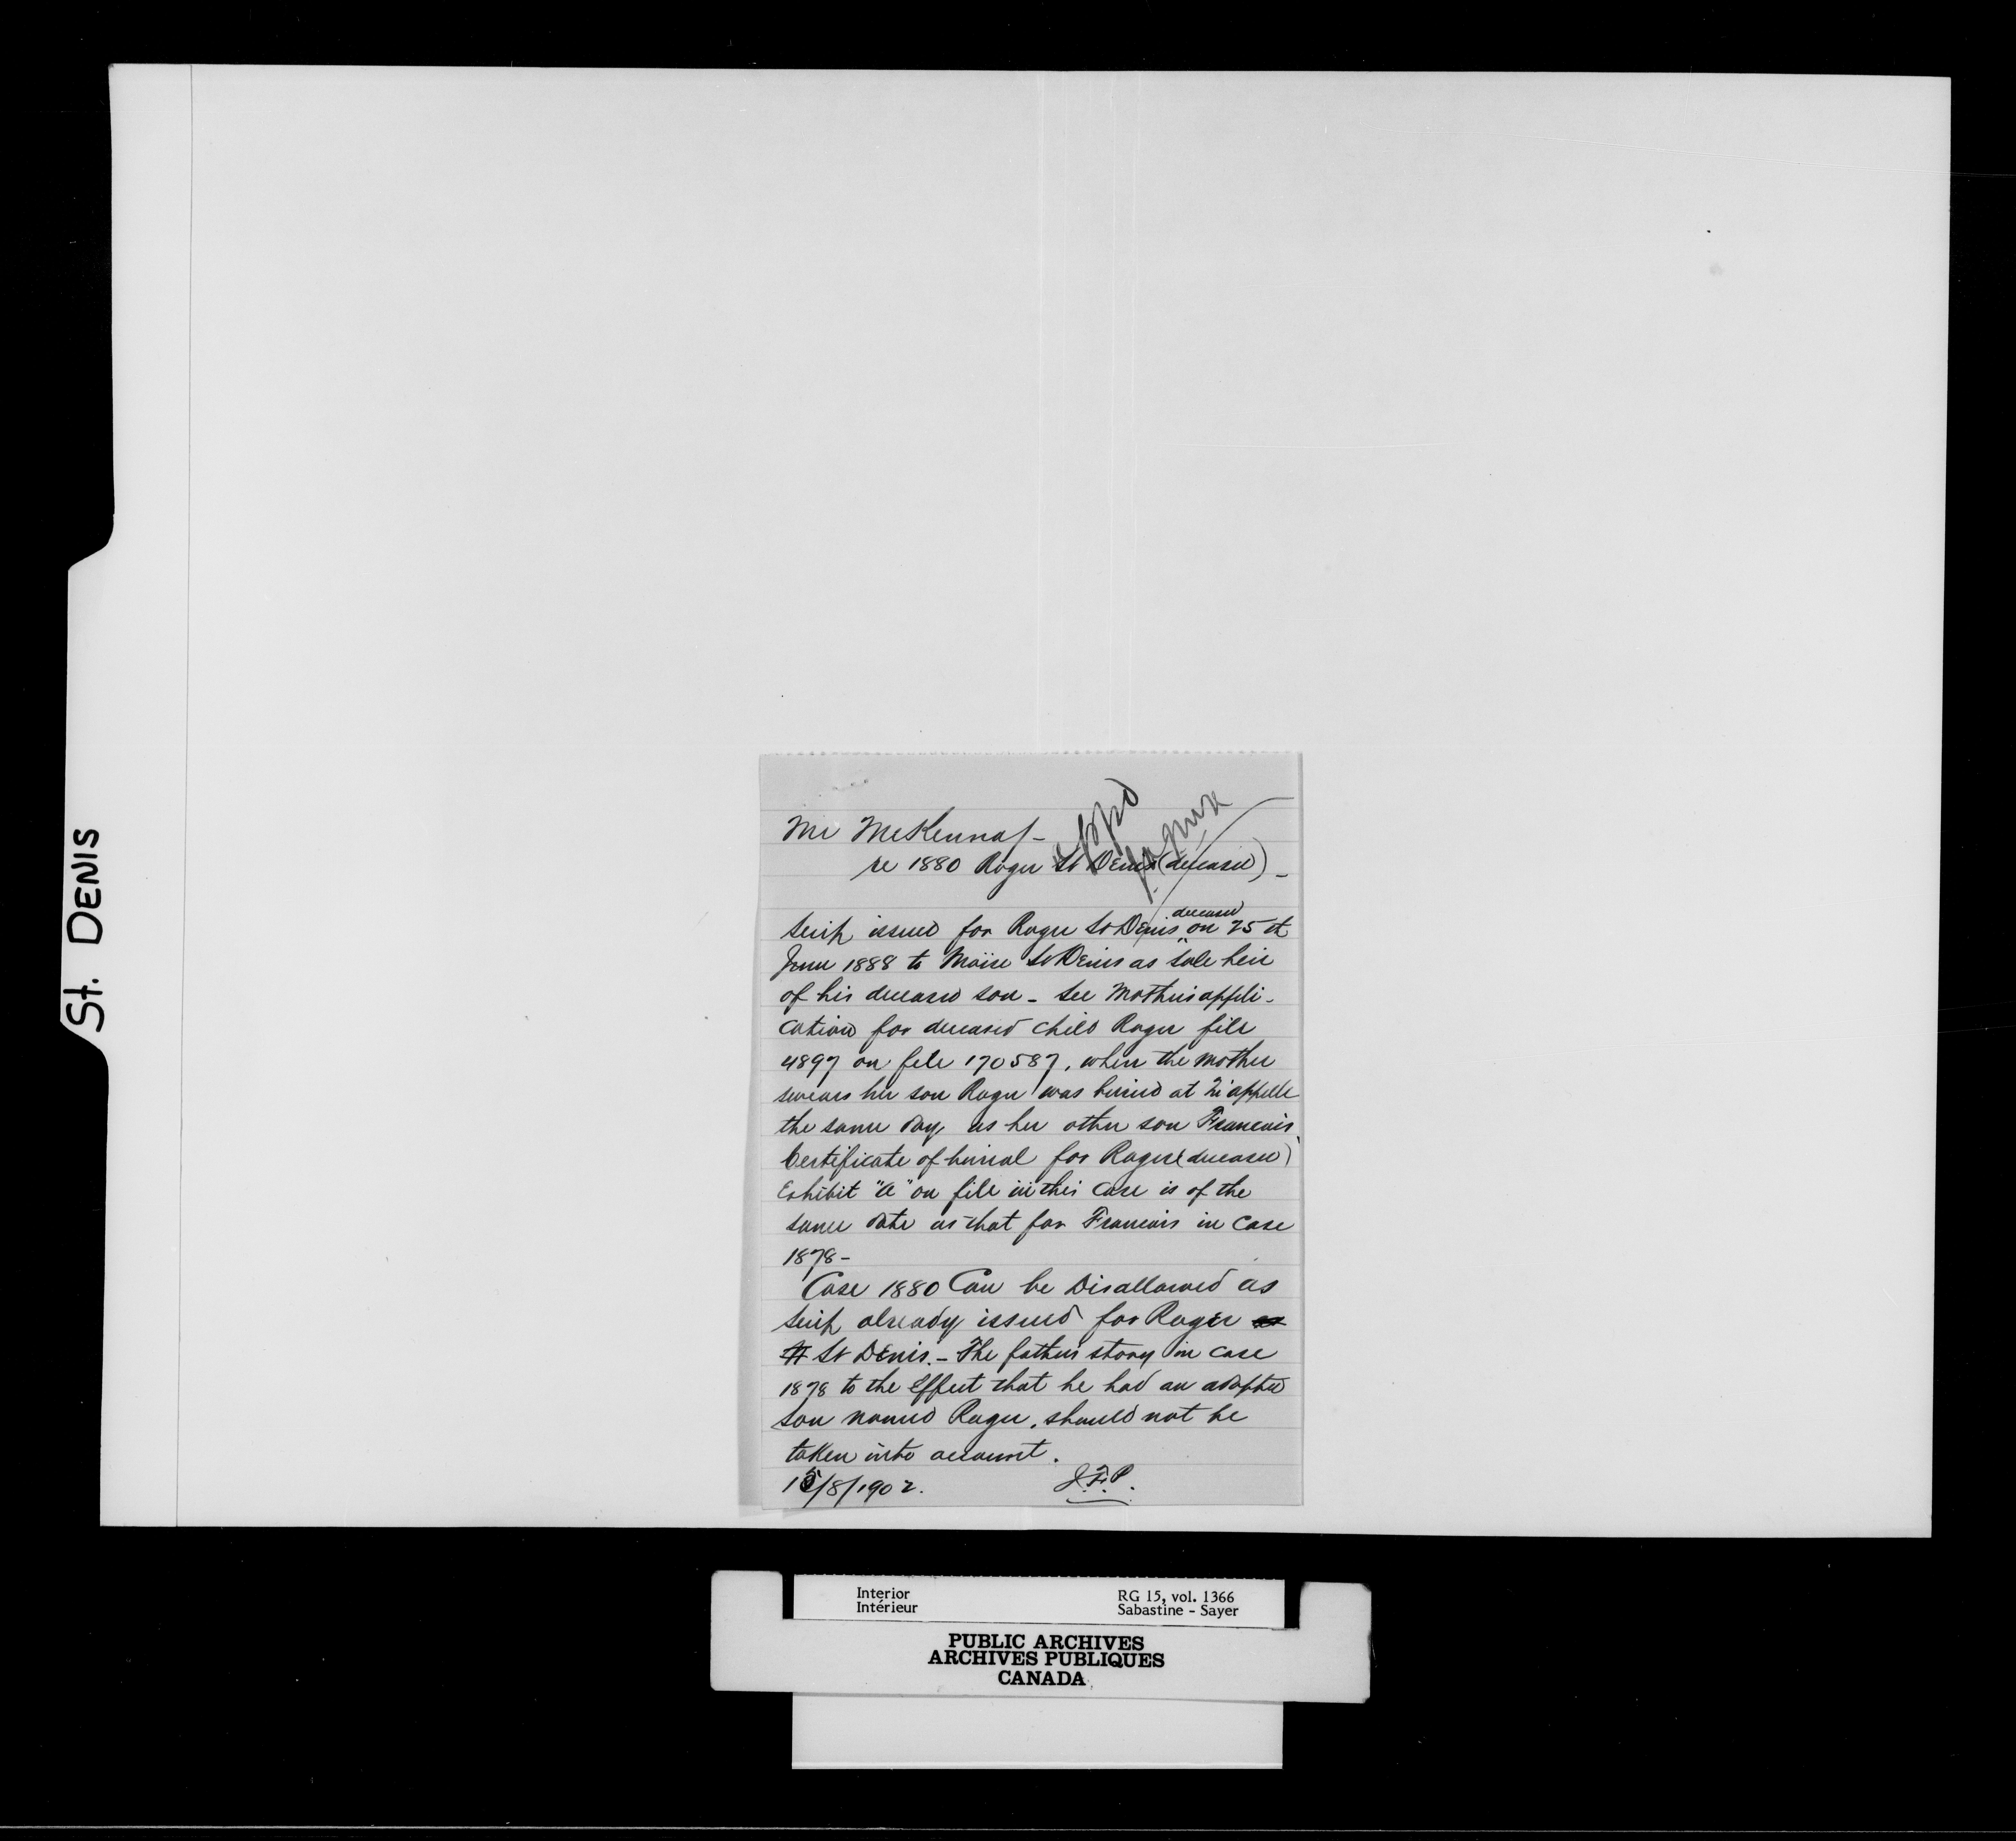 St. DENIS
Mr McKenna/-
re 1880 Roger St Denis (deceased) -
Scrip issued for Roger St Denis deceased on 25th
June 1888 to Moïse St Denis as sole heir
of his deceased son - See Mother's appli-
cation for deceased child Roger file
4897 on file 170587, when the mother
swears her son Roger was buried at Qu'appelle
the same day as her other son Francois.
Certificate of burial for Roger (deceased)
Exhibit "A" on file in this case is of the
same date as that for Francois in case
1878 -
Case 1880 Can be Disallowed as
Scrip already issued for Roger
St Denis. - The fathers story in case
1878 to the effect that he had an adopted
son named Roger, should not be
taken into account.
15/8/1902. J.F.P.
Interior
Intérieur
RG 15, vol. 1366
Sabastine - Sayer
PUBLIC ARCHIVES
ARCHIVES PUBLIQUES
CANADA